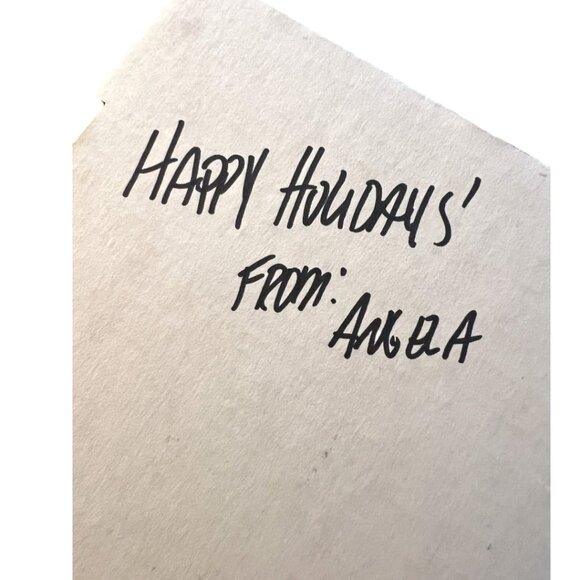 HAPPY HOLIDAYS'
FROM:
ANGELA